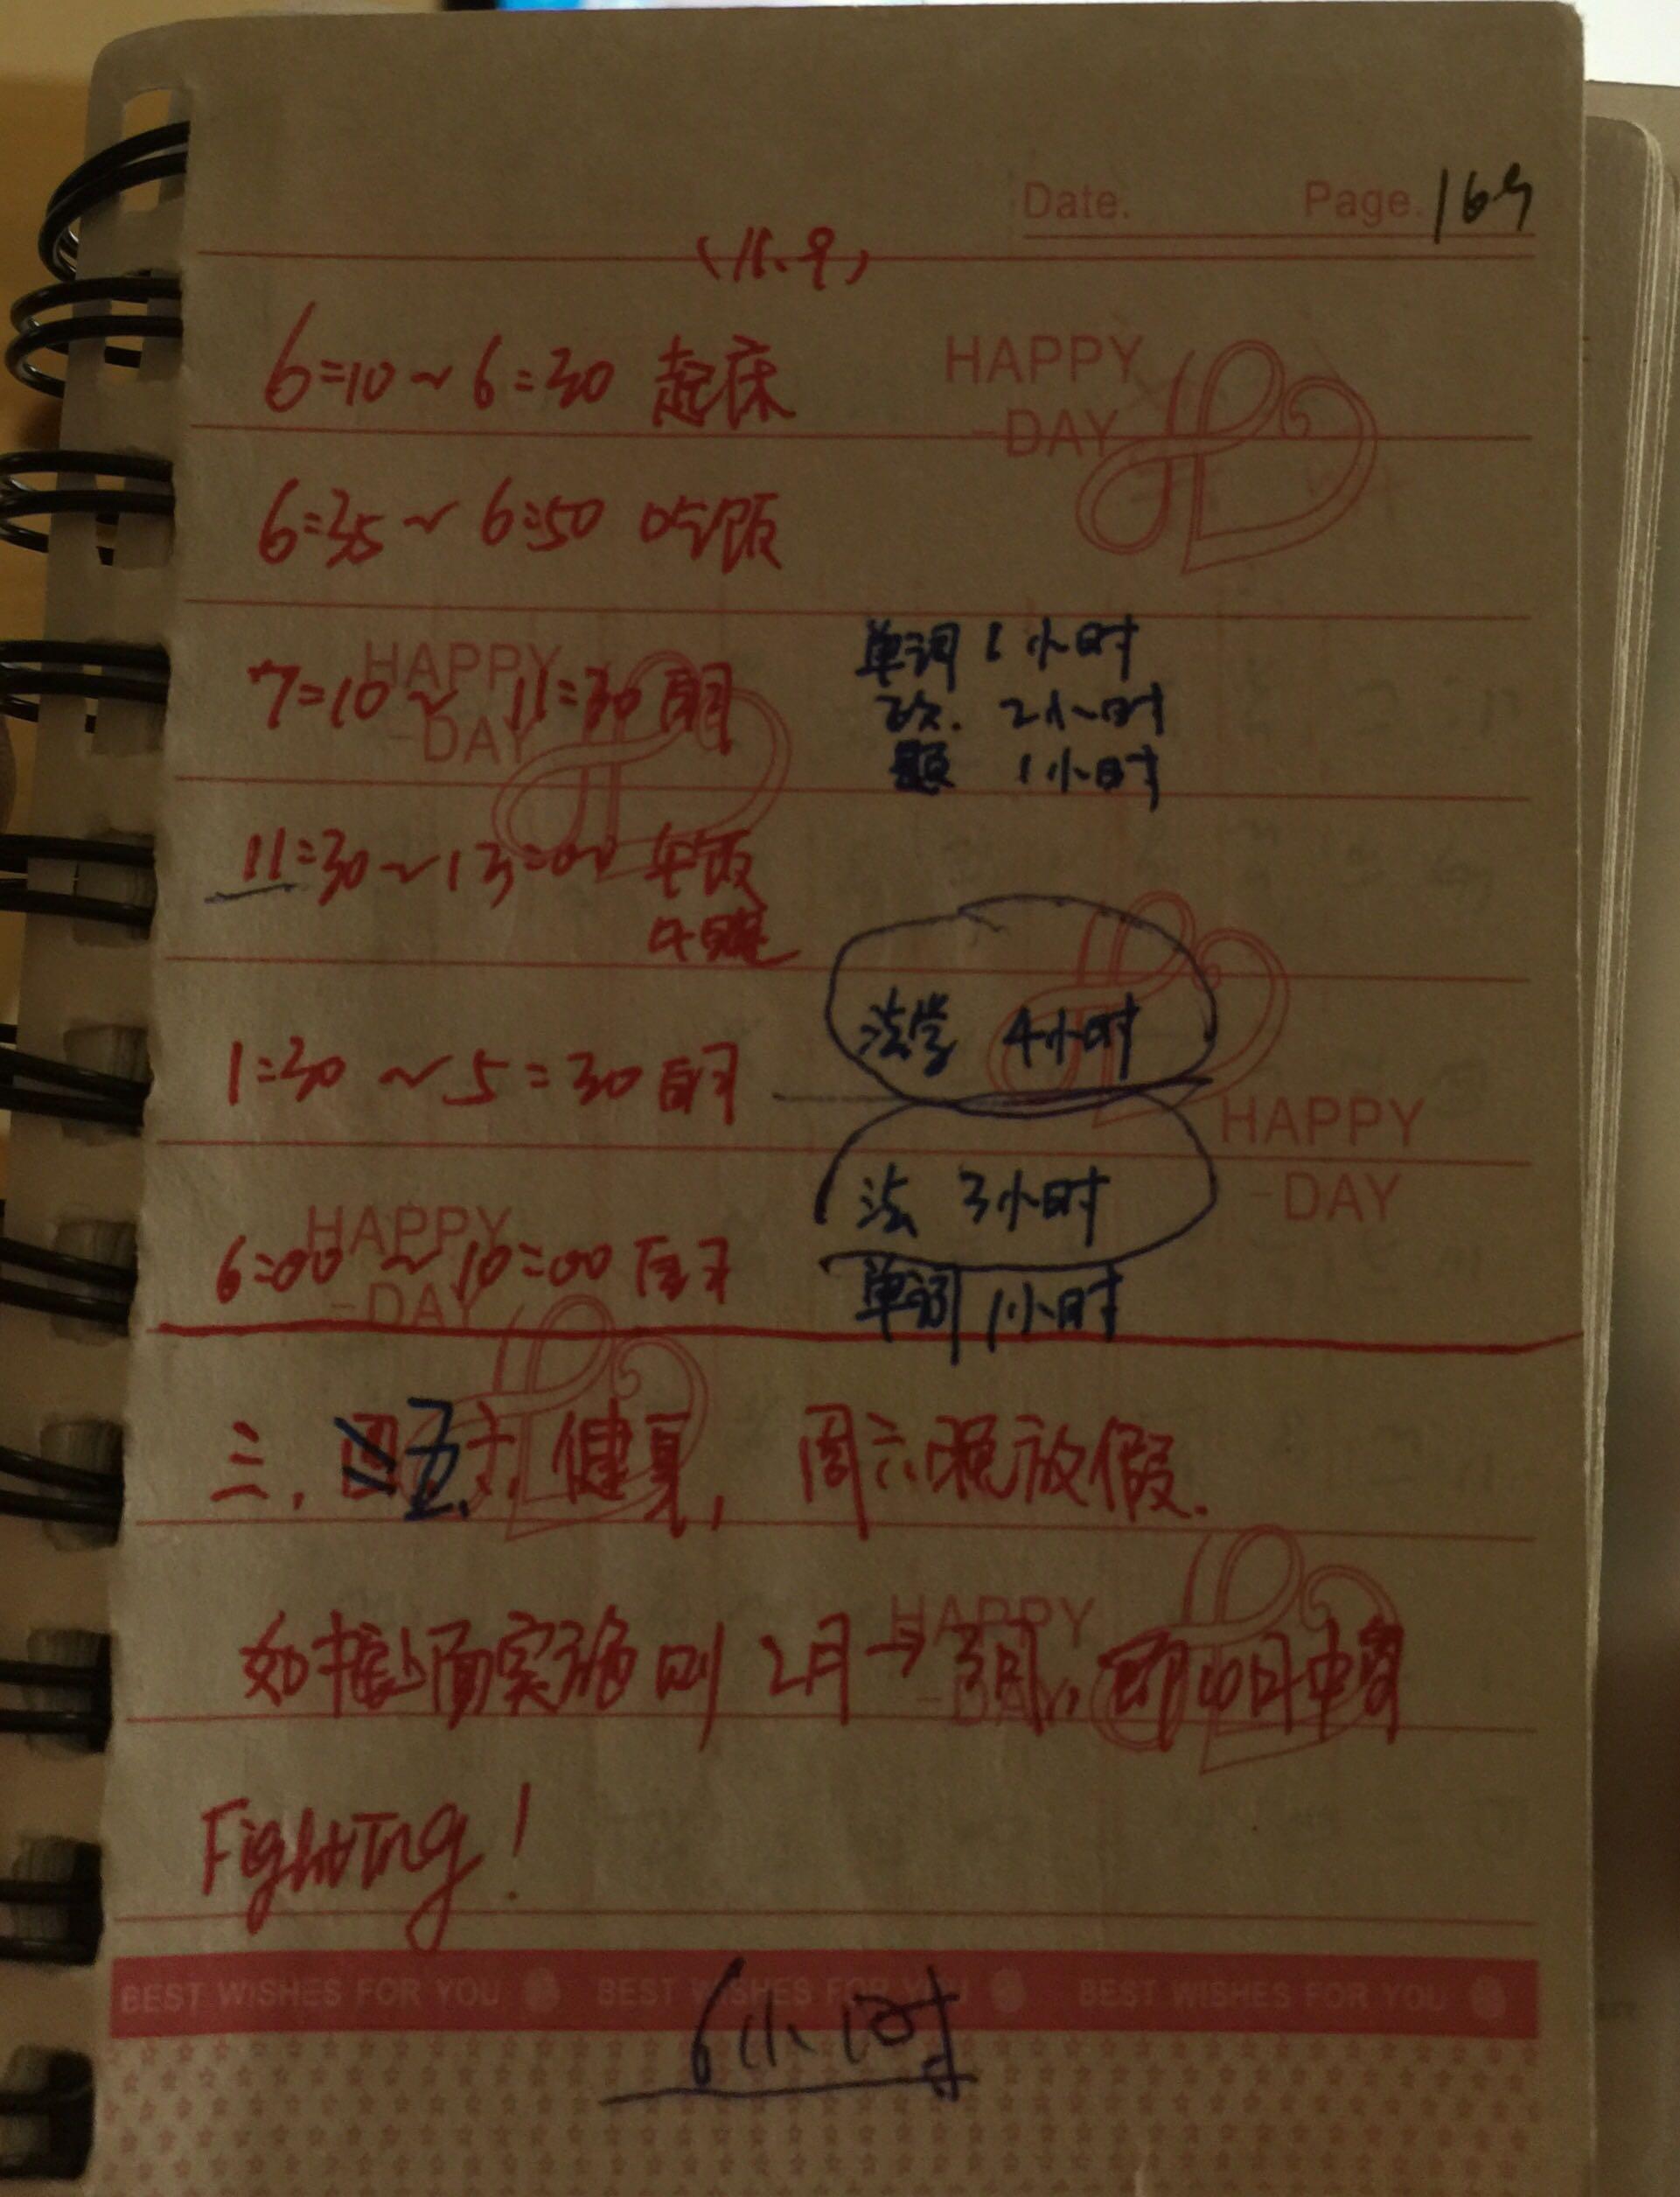 Date. Page. 169
(11.9)
6:10~6:30 起床
HAPPY
-DAY
6:35~6:50 吃饭
HAPPY
-DAY
7:10~11:30 自习
单词 1小时
政. 2小时
题 1小时
11:30~13:00 午饭
午睡
法学 4小时
1:30~5:30 自习
HAPPY
-DAY
法 3小时
HAPPY
-DAY
6:00~10:00 自习
单词 1小时
三. 五. 六. 健身, 周六晚放假.
HAPPY
-DAY
如按上面实施则 2月→3月, 即
Fighting!
BEST WISHES FOR YOU BEST WISHES FOR YOU BEST WISHES FOR YOU
6小时